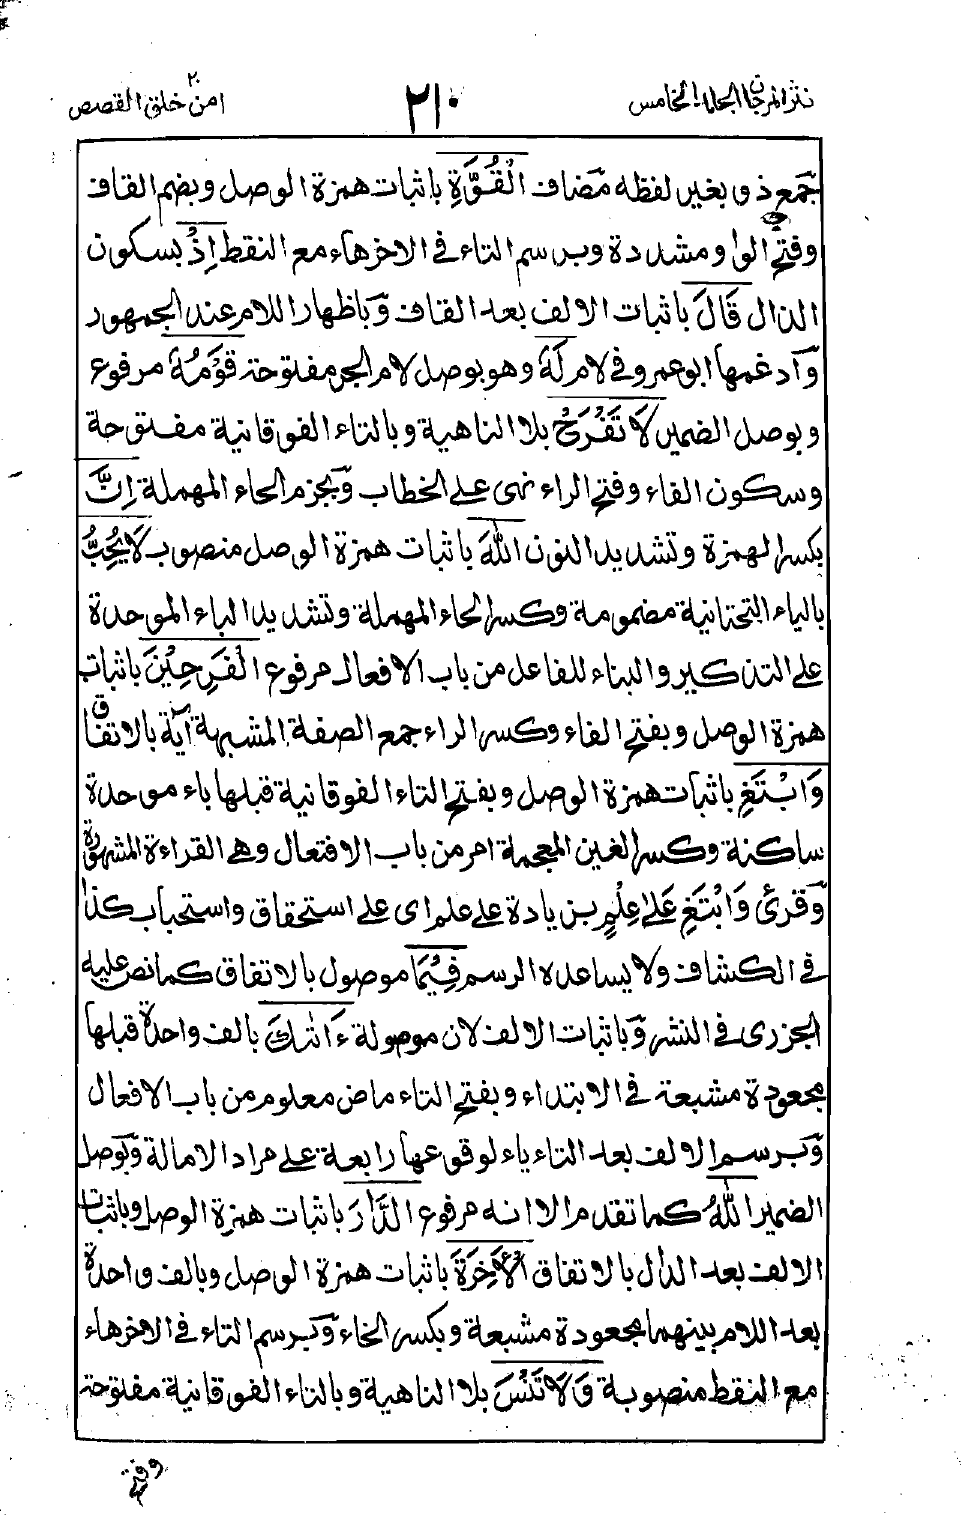 نثر المرجان الجلد الخامس
٢١٠
امن خلق ٢٠ القصص
جمع ذو بغير لفظه مضاف الْقُوَّةِ باثبات همزة الوصل وبضم القاف
وفتح الواو مشددة وبرسم التاء فى الاخر هاء مع النقط اِذْ بسكون
الذال قَالَ باثبات الالف بعد القاف وَباظهار اللام عند الجمهور
وَادغمها ابو عمرو فى لام لَهٗ وهو بوصل لام الجر مفتوحة قَوْمُهٗ مرفوع
وبوصل الضمير لَا تَفْرَحْ بلا الناهية وبالتاء الفوقانية مفتوحة
وسكون الفاء وفتح الراء نهى على الخطاب وَبجزم الحاء المهملة اِنَّ
بكسر الهمزة وتشديد النون اللّٰهَ باثبات همزة الوصل منصوب لَا يُحِبُّ
بالياء التحتانية مضمومة وكسر الحاء المهملة وتشديد الباء الموحدة
على التذكير والبناء للفاعل من باب الافعال مرفوع الْفَرِحِيْنَ باثبات
همزة الوصل وبفتح الفاء وكسر الراء جمع الصفة المشبهة آية بالاتفاق
وَابْتَغِ باثبات همزة الوصل وبفتح التاء الفوقانية قبلها باء موحدة
ساكنة وكسر الغين المعجمة امر من باب الافتعال وهى القراءة المشهورة
وَقرئ وَابْتَغِ عَلٰى عِلْمٍ بزيادة على علم اى على استحقاق واستحباب كذا
فى الكشاف ولا يساعده الرسم فِيْمَا موصول بالاتفاق كما نص عليه
الجزرى فى النشر وَباثبات الالف لان موصولة ءَاتٰىكَ بالف واحدة قبلها
مجعودة مشبعة فى الابتداء وبفتح التاء ماض معلوم من باب الافعال
وَبرسم الالف بعد التاء ياء لوقوعها رابعة على مراد الامالة وَبوصل
الضمير اللّٰهُ كما تقدم الا انه مرفوع الدَّارَ باثبات همزة الوصل وباثبات
الالف بعد الدال بالاتفاق الْاٰخِرَةَ باثبات همزة الوصل وبالف واحدة
بعد اللام بينهما مجعودة مشبعة وبكسر الخاء وَبرسم التاء فى الاخر هاء
مع النقط منصوبة وَلَا تَنْسَ بلا الناهية وبالتاء الفوقانية مفتوحة
وفتح